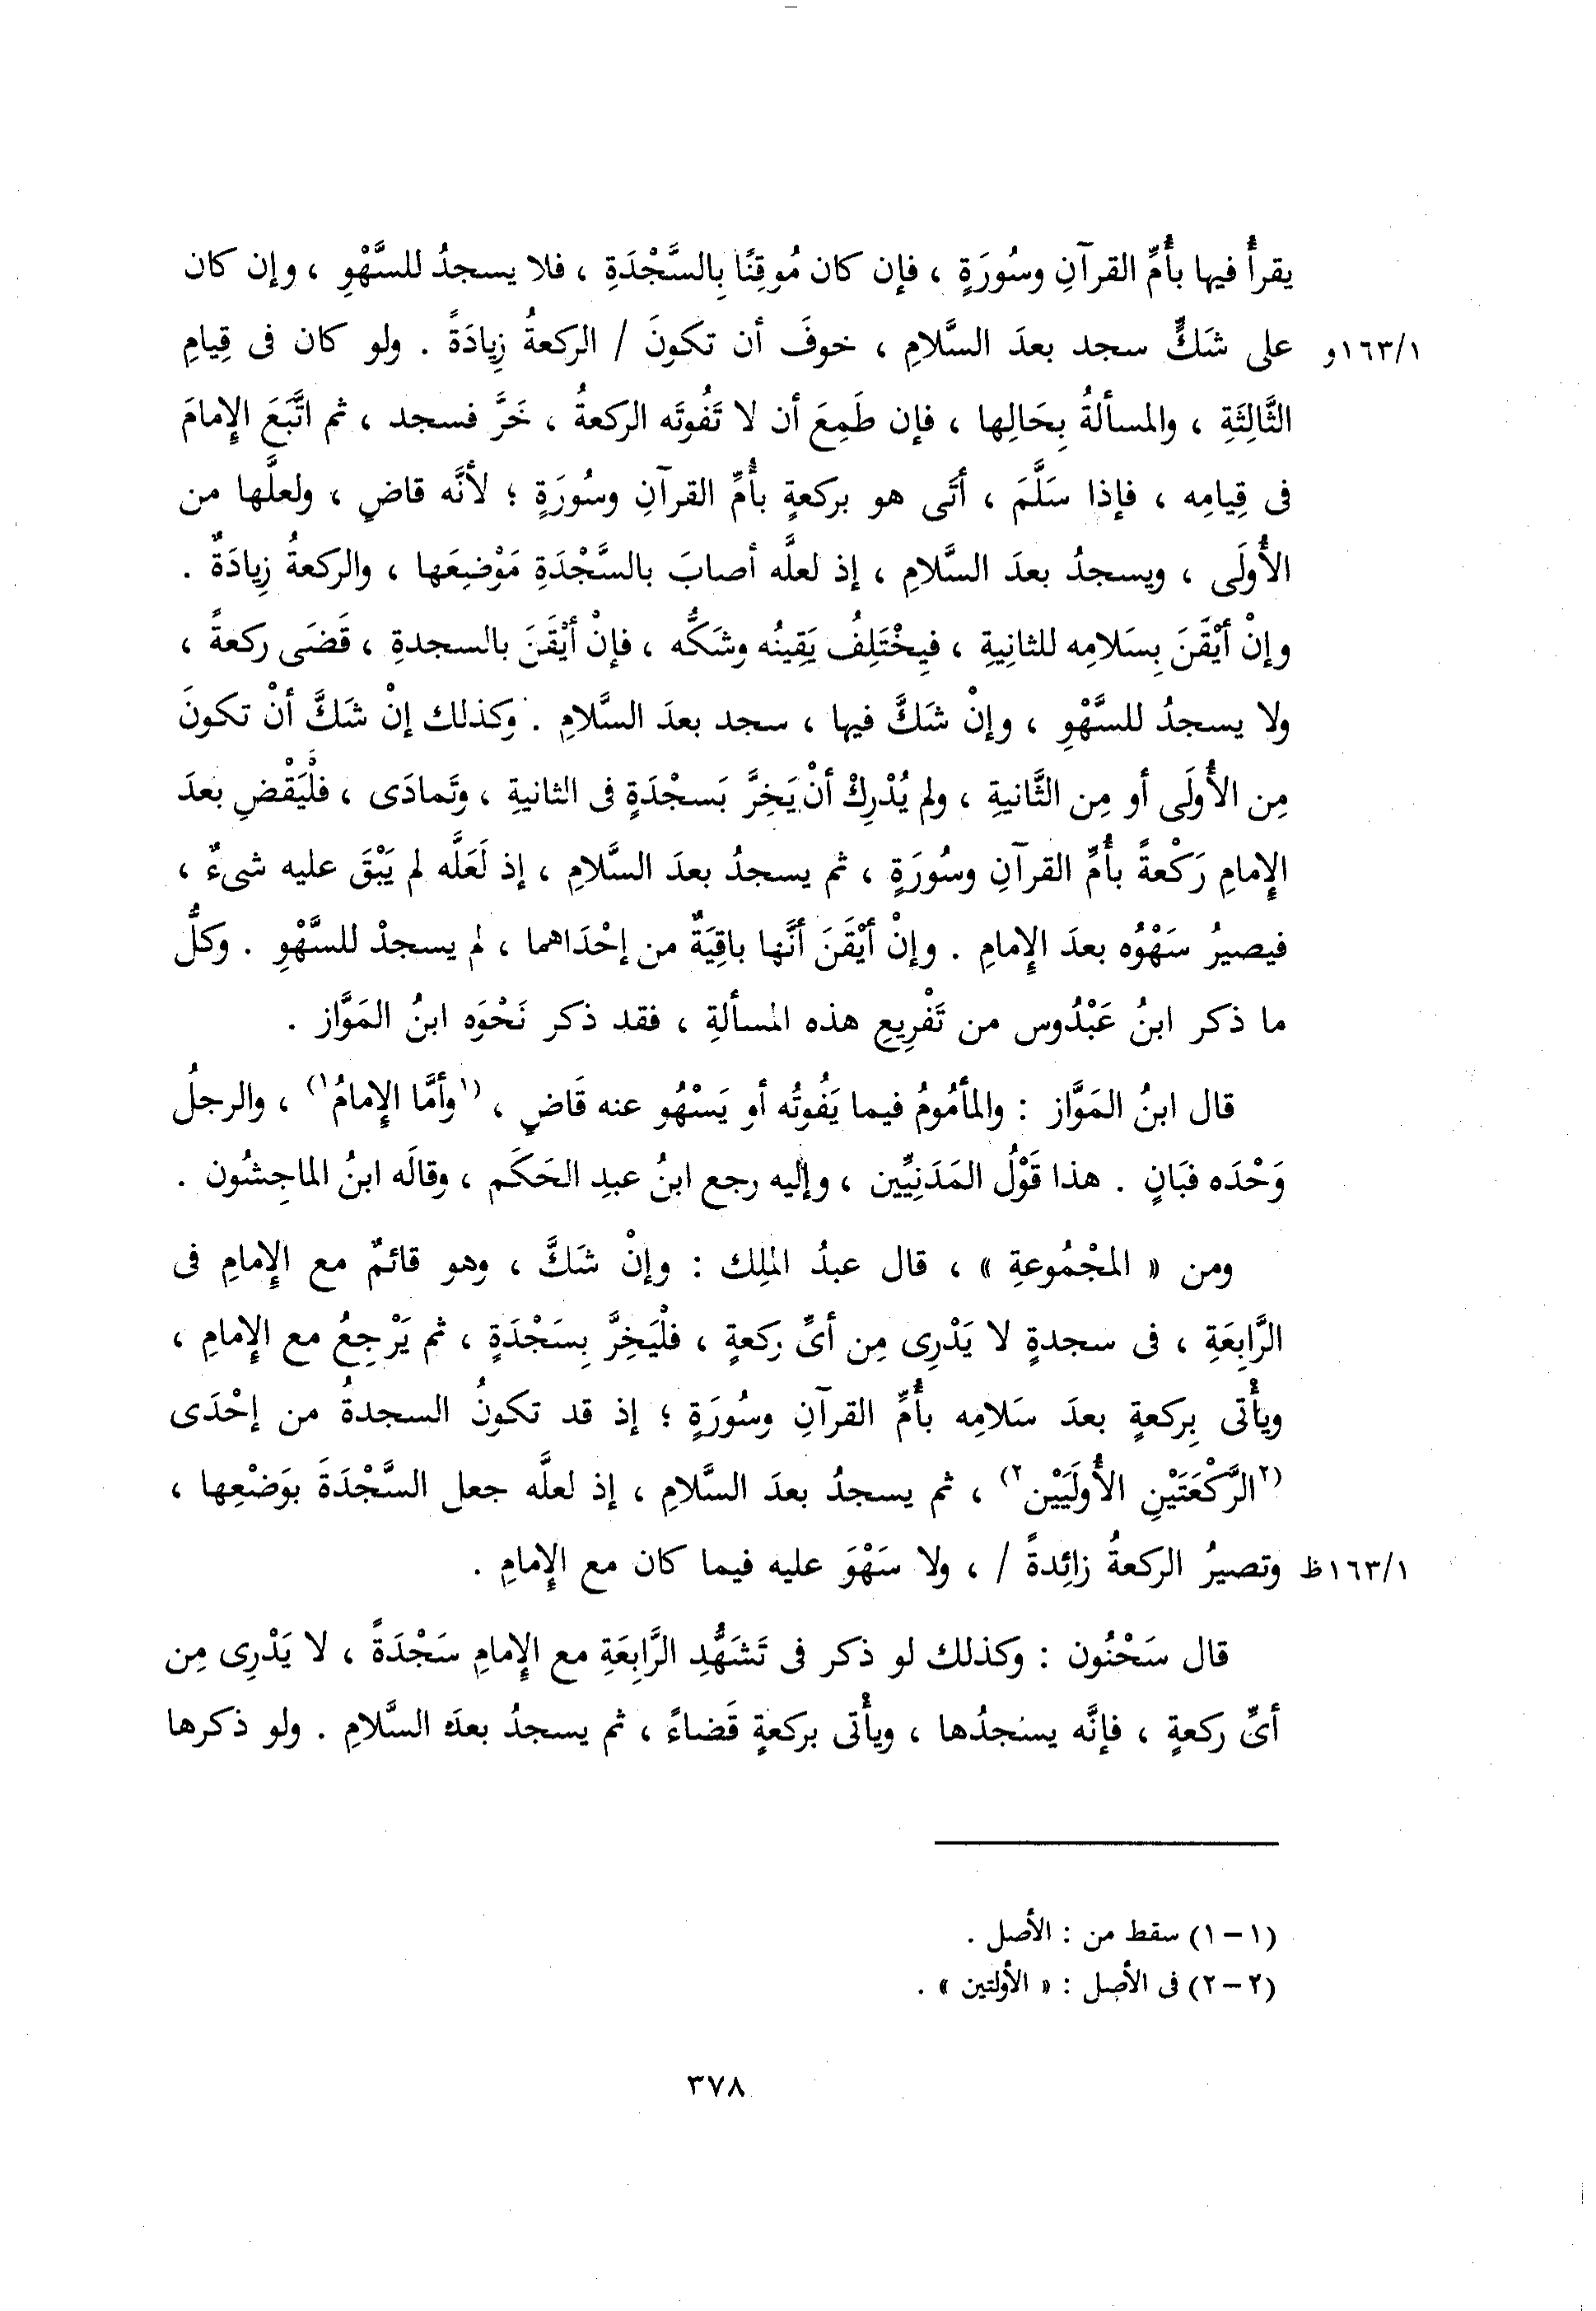 يقرأُ فيها بأُمِّ القرآنِ وسُورَةٍ ، فإن كان مُوقِنًا بِالسَّجْدَةِ ، فلا يسجدُ للسَّهْوِ ، وإن كان
١٦٣/١و على شَكٍّ سجد بعدَ السَّلامِ ، خوفَ أن تكونَ / الركعةُ زِيادَةً . ولو كان فى قِيامِ
الثَّالِثَةِ ، والمسألةُ بِحَالِها ، فإن طَمِعَ أن لا تَفُوتَه الركعةُ ، خَرَّ فسجد ، ثم اتَّبَعَ الإِمامَ
فى قِيامِه ، فإذا سَلَّمَ ، أتَى هو بركعةٍ بأُمِّ القرآنِ وسُورَةٍ ؛ لأنَّه قاضٍ ، ولعلَّها من
الأُولَى ، ويسجدُ بعدَ السَّلامِ ، إذ لعلَّه أصابَ بالسَّجْدَةِ مَوْضِعَها ، والركعةُ زِيادَةٌ .
وإنْ أيْقَنَ بِسَلامِه للثانِيةِ ، فيخْتَلِفُ يَقِينُه وشَكُّه ، فإنْ أيْقَنَ بالسجدةِ ، قَضَى ركعةً ،
ولا يسجدُ للسَّهْوِ ، وإنْ شَكَّ فيها ، سجد بعدَ السَّلامِ . وكذلك إنْ شَكَّ أنْ تكونَ
مِن الأُولَى أو مِن الثَّانيةِ ، ولم يُدْرِكْ أنْ يَخِرَّ بَسجْدَةٍ فى الثانيةِ ، وتَمادَى ، فلْيَقْضِ بعدَ
الإِمامِ رَكْعةً بأُمِّ القرآنِ وسُورَةٍ ، ثم يسجدُ بعدَ السَّلامِ ، إذ لَعَلَّه لم يَبْقَ عليه شىءٌ ،
فيصيرُ سَهْوُه بعدَ الإِمامِ . وإنْ أيْقَنَ أنَّها باقِيَةٌ من إحْدَاهما ، لم يسجدْ للسَّهْوِ . وكلُّ
ما ذكر ابنُ عَبْدُوس من تَفْرِيعِ هذه المسألةِ ، فقد ذكر نَحْوَه ابنُ المَوَّاز .
قال ابنُ المَوَّاز : والمأمُومُ فيما يَفُوتُه أو يَسْهُو عنه قَاضٍ ، (١وأمَّا الإِمامُ١) ، والرجلُ
وَحْدَه فبَانٍ . هذا قَوْلُ المَدَنِيِّين ، وإليه رجع ابنُ عبدِ الحَكَم ، وقالَه ابنُ الماجِشُون .
ومن « المجْمُوعةِ » ، قال عبدُ الملِك : وإنْ شَكَّ ، وهو قائمٌ مع الإِمامِ فى
الرَّابِعَةِ ، فى سجدةٍ لا يَدْرِى مِن أىِّ ركعةٍ ، فلْيَخِرَّ بِسَجْدَةٍ ، ثم يَرْجِعُ مع الإِمامِ ،
ويأْتى بِركعةٍ بعدَ سَلامِه بأُمِّ القرآنِ وسُورَةٍ ؛ إذ قد تكونُ السجدةُ من إحْدَى
(٢الرَّكْعَتَيْنِ الأُولَيَيْن٢) ، ثم يسجدُ بعدَ السَّلامِ ، إذ لعلَّه جعل السَّجْدَةَ بوَضْعِها ،
١٦٣/١ظ وتصيرُ الركعةُ زائِدةً / ، ولا سَهْوَ عليه فيما كان مع الإِمامِ .
قال سَحْنُون : وكذلك لو ذكر فى تَشَهُّدِ الرَّابِعَةِ مع الإِمامِ سَجْدَةً ، لا يَدْرِى مِن
أىِّ ركعةٍ ، فإنَّه يسجدُها ، ويأْتى بركعةٍ قَضاءً ، ثم يسجدُ بعدَ السَّلامِ . ولو ذكرها
(١-١) سقط من : الأصل .
(٢-٢) فى الأصل : « الأولتين » .
٣٧٨